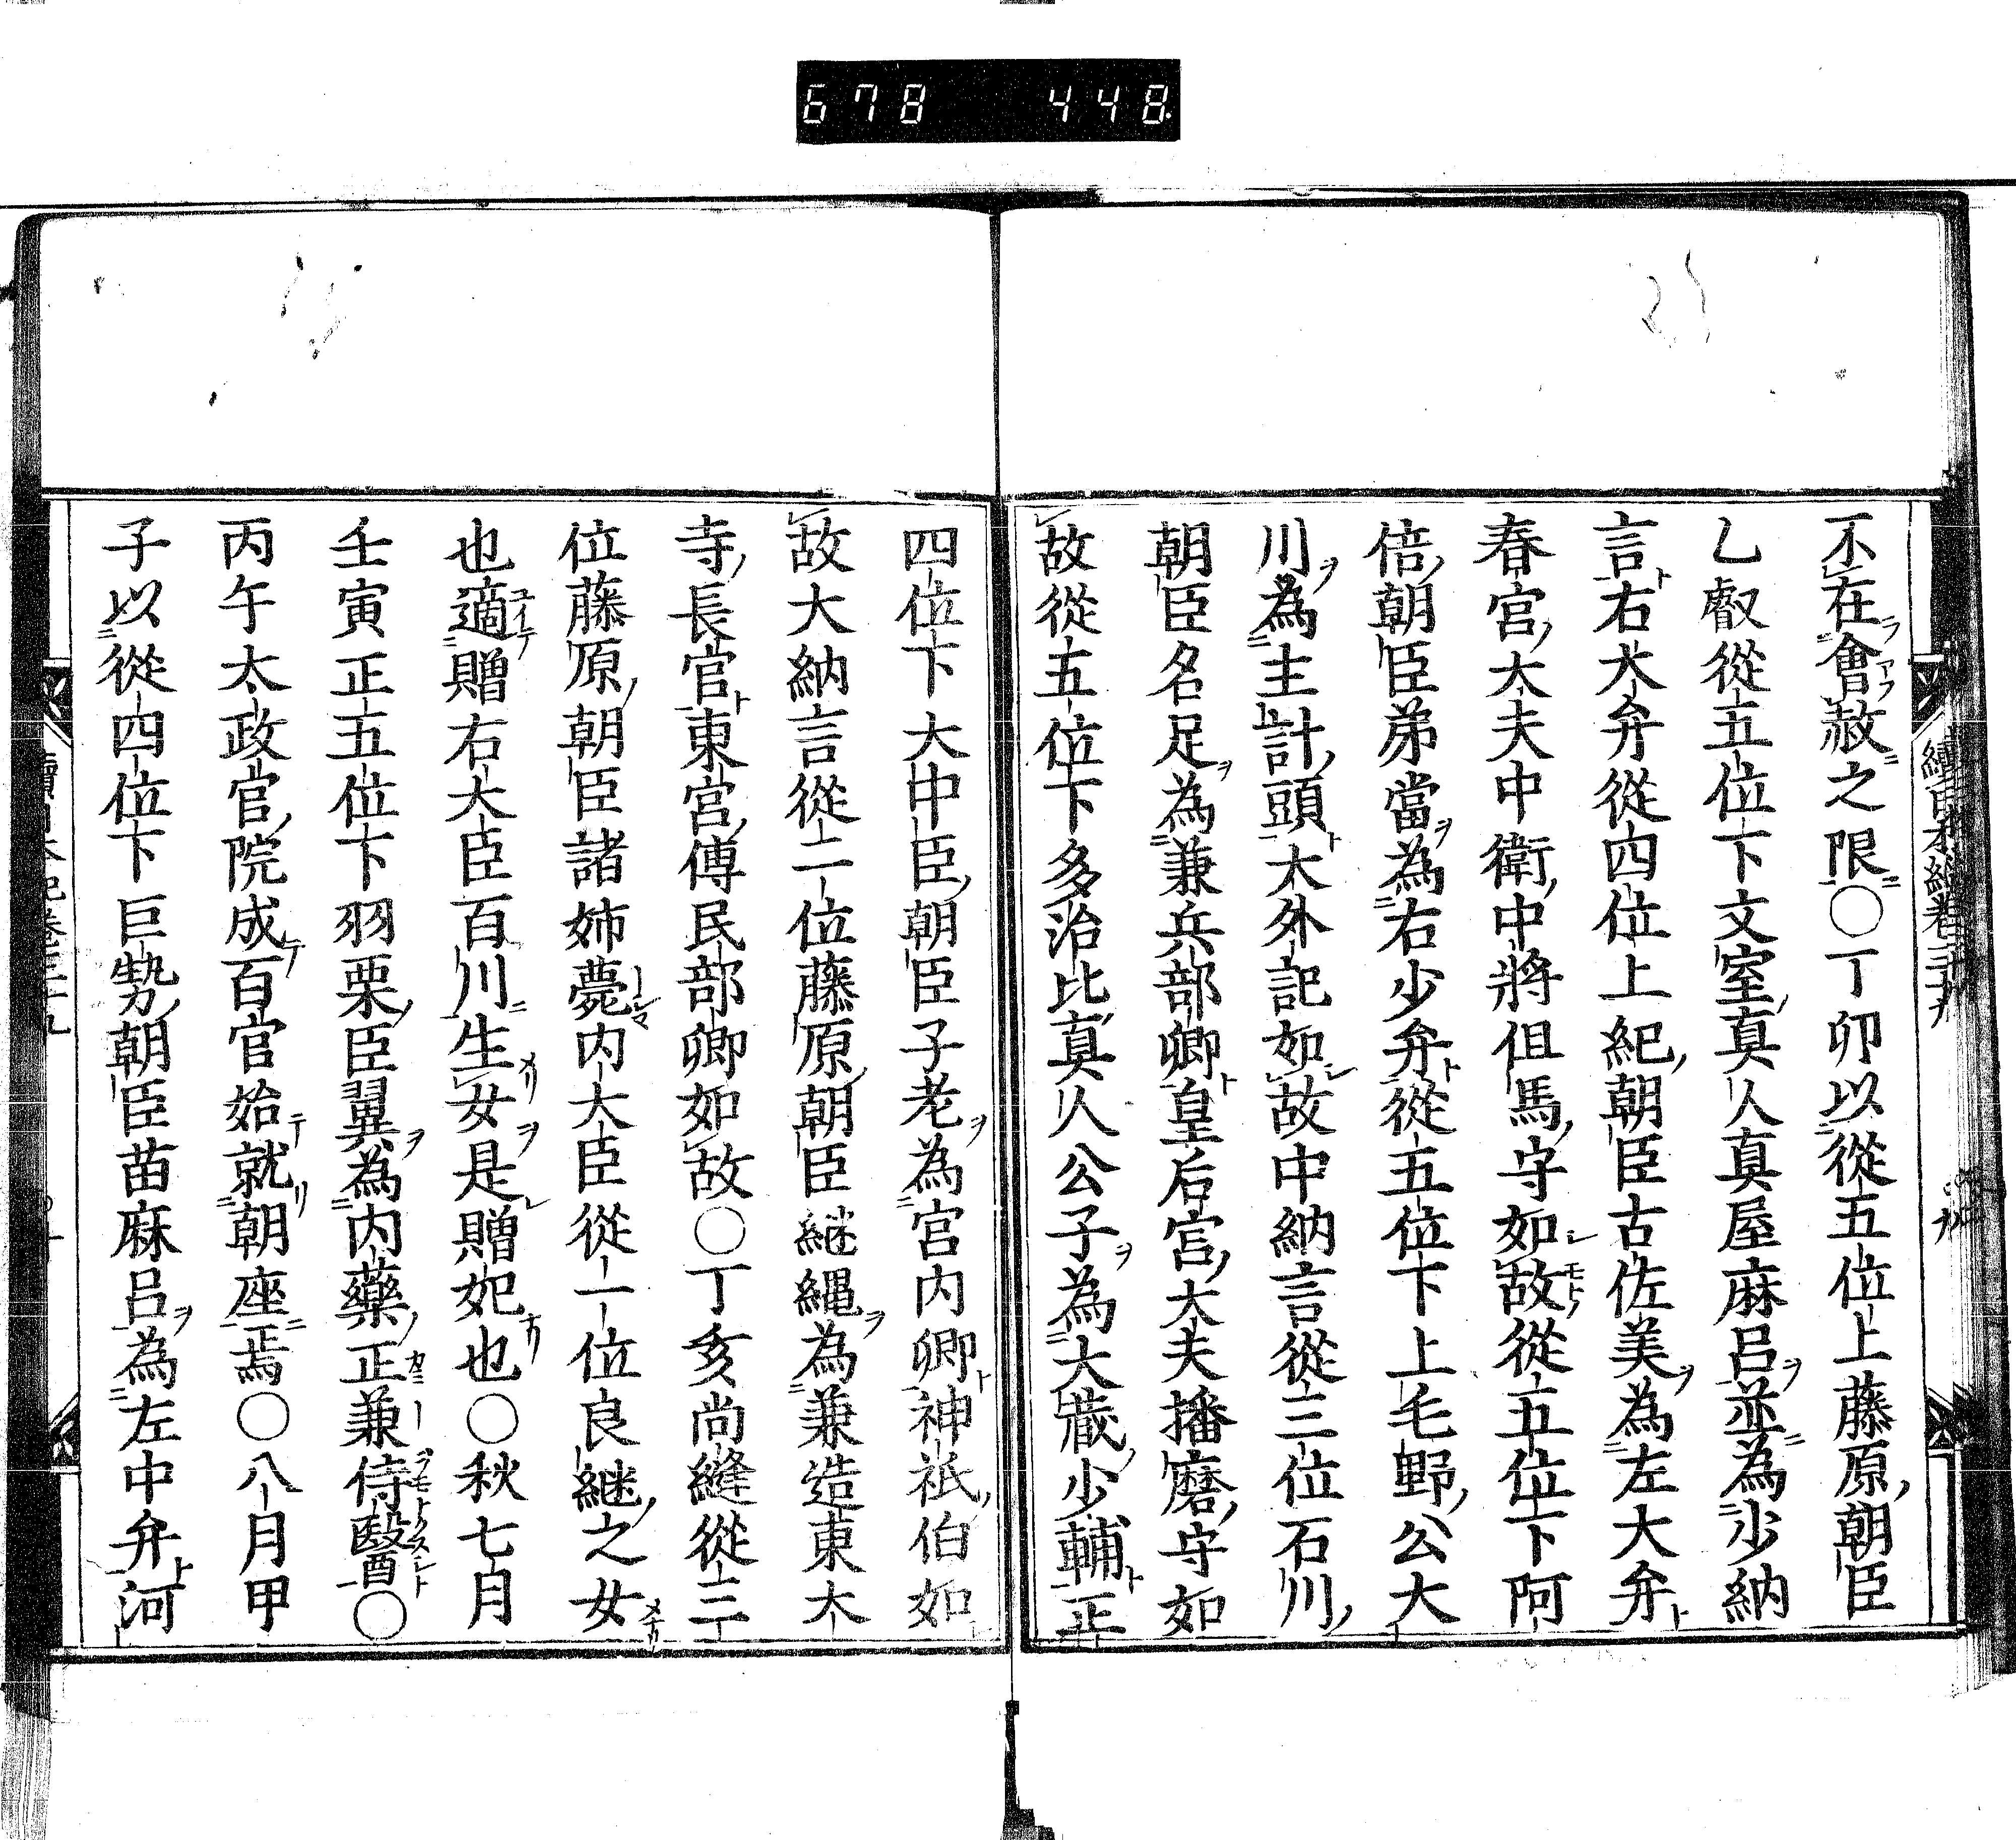 678 448
不在會赦之限〇丁卯以從五位上藤原朝臣
乙叡從五位下文室真人真屋麻呂並為少納
言右大弁從四位上紀朝臣古佐美為左大弁
春宮大夫中衛中將但馬守如故從五位下阿
倍朝臣弟當為右少弁從五位下上毛野公大
川為主計頭大外記如故中納言從三位石川
朝臣名足為兼兵部卿皇后宮大夫播磨守如
故從五位下多治比真人公子為大蔵少輔正
四位下大中臣朝臣子老為宮内卿神祇伯如
故大納言從二位藤原朝臣継縄為兼造東大
寺長官東宮傅民部卿如故〇丁亥尚縫從三
位藤原朝臣諸姉薨内大臣從一位良継之女
也適贈右大臣百川生女是贈妃也〇秋七月
壬寅正五位下羽栗臣翼為内藥正兼侍醫〇
丙午太政官院成百官始就朝座焉〇八月甲
子以從四位下巨勢朝臣苗麻呂為左中弁河